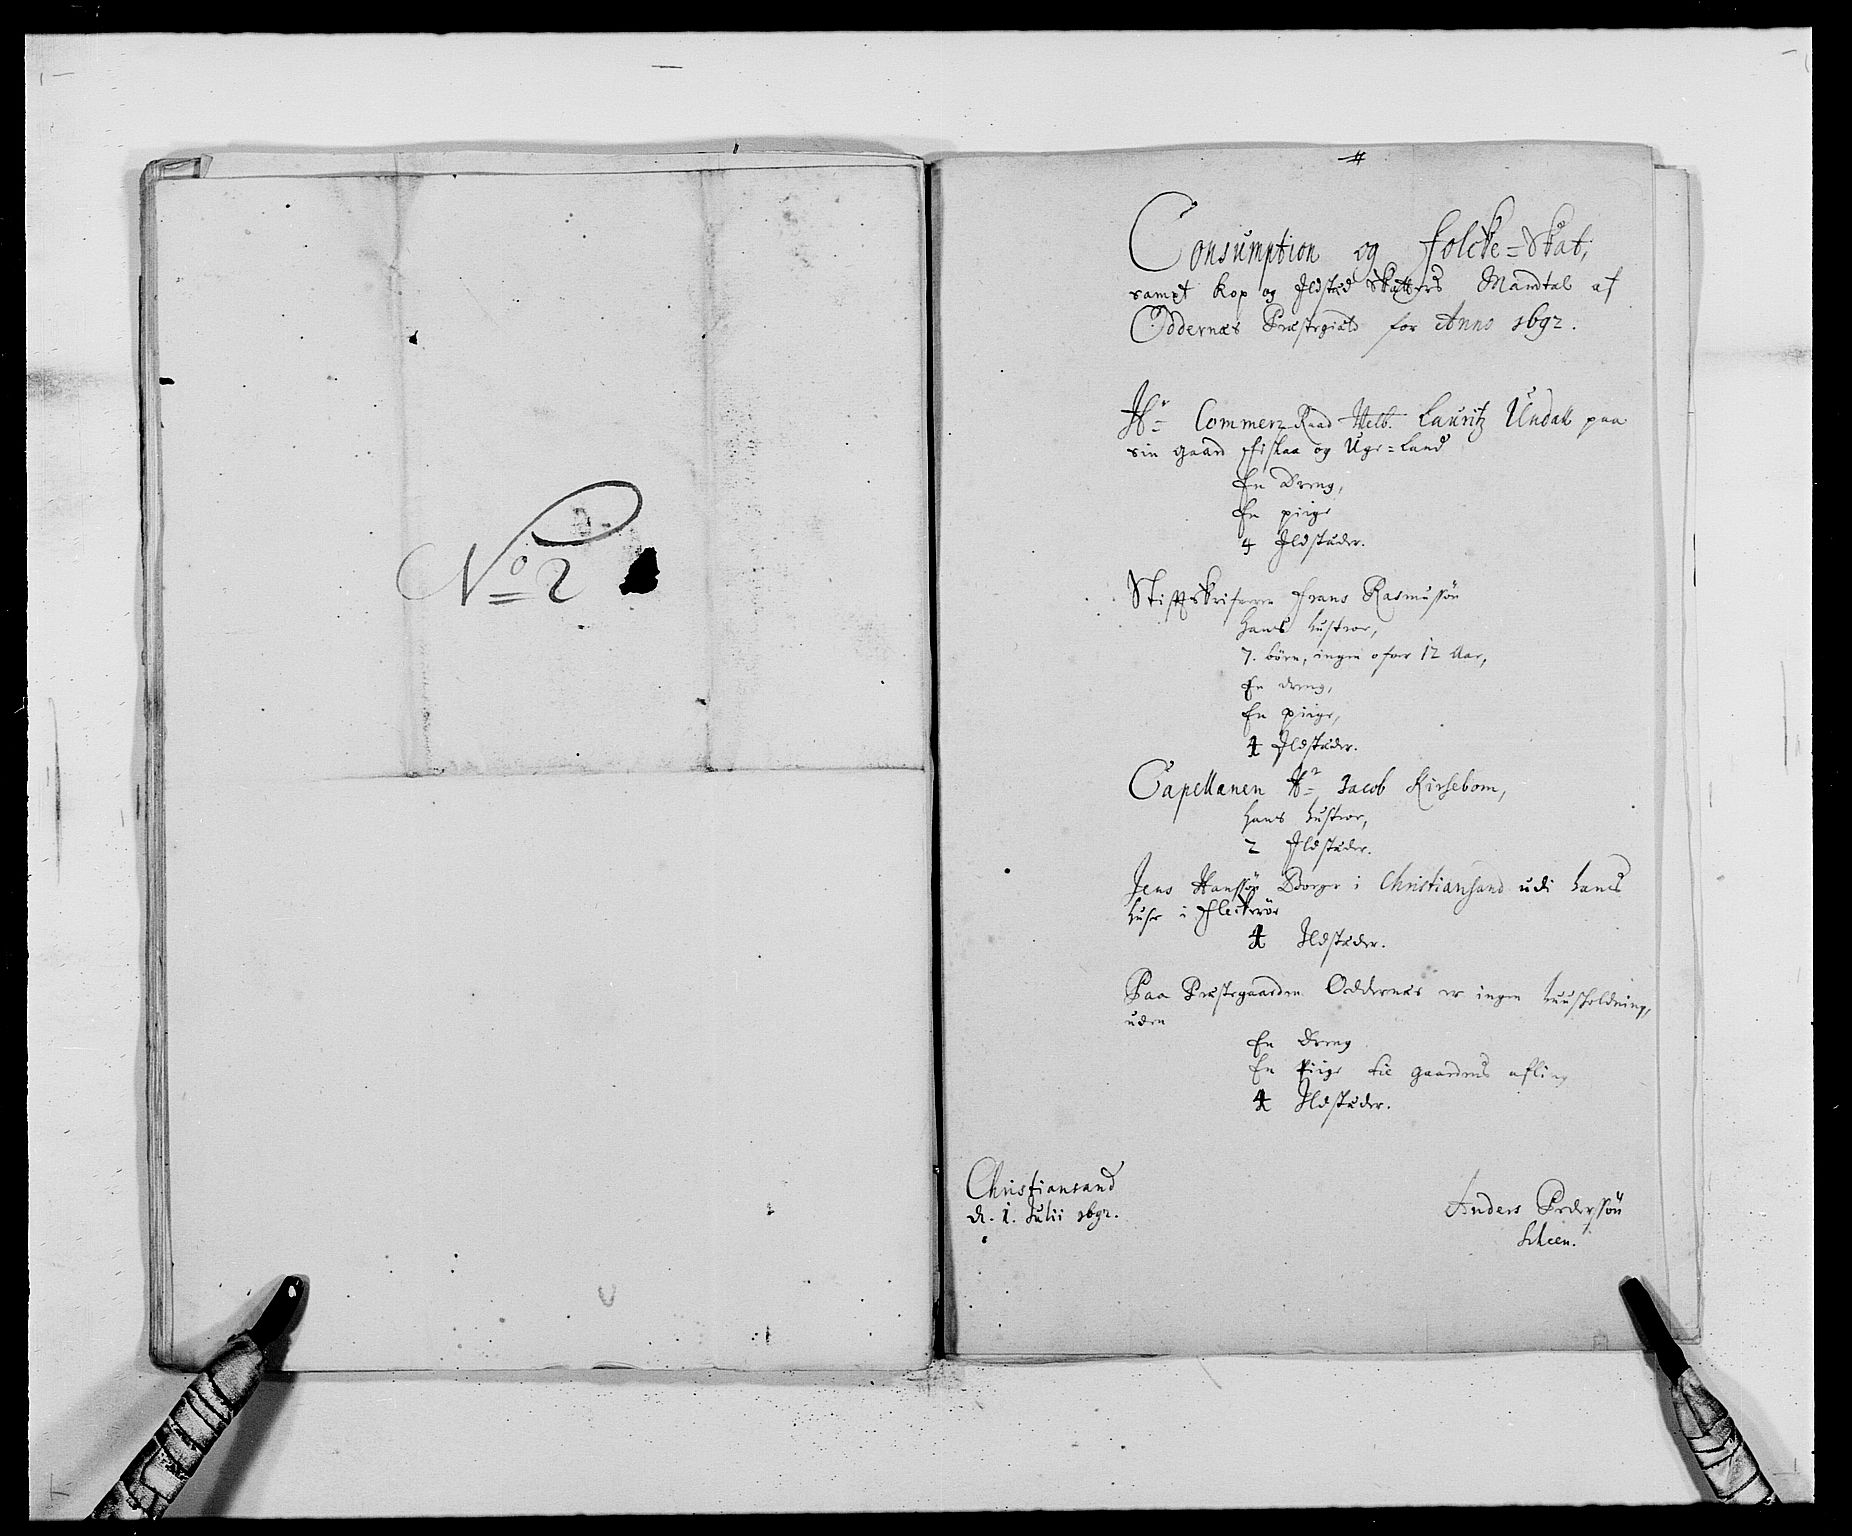 No 2
Consumption og folcke-Skat,
sampt Kop og Ildsted Skatters Mandtal af
Oddernæs Præstegield for Anno 1692.
Hr Commerz Raad Welb. Lauritz Undall paa
sin gaard Fiskaa og Uge-land
En Dreng,
En piige
4 Ildstæder.
Stifftskrifveren Frans Rasmussøn
hans hustroe,
7. børn, ingen ofver 12 Aar,
En dreng,
En piige,
4 Ildstæder.
Capellanen Hr Jacob Kirsebom,
hans hustroe,
2 Ildstæder.
Jens Hanssøn Borger i Christiansand udi hans
huse i Fleckerøe
4 Ildstæder.
Paa Præstegaarden Oddernæs er ingen huusholdning,
uden
En Dreng
En Piige til gaardens afling
4 Ildstæder.
Christiansand
d. 1. Julii 1692.
Anders Pederssøn
Scheen.